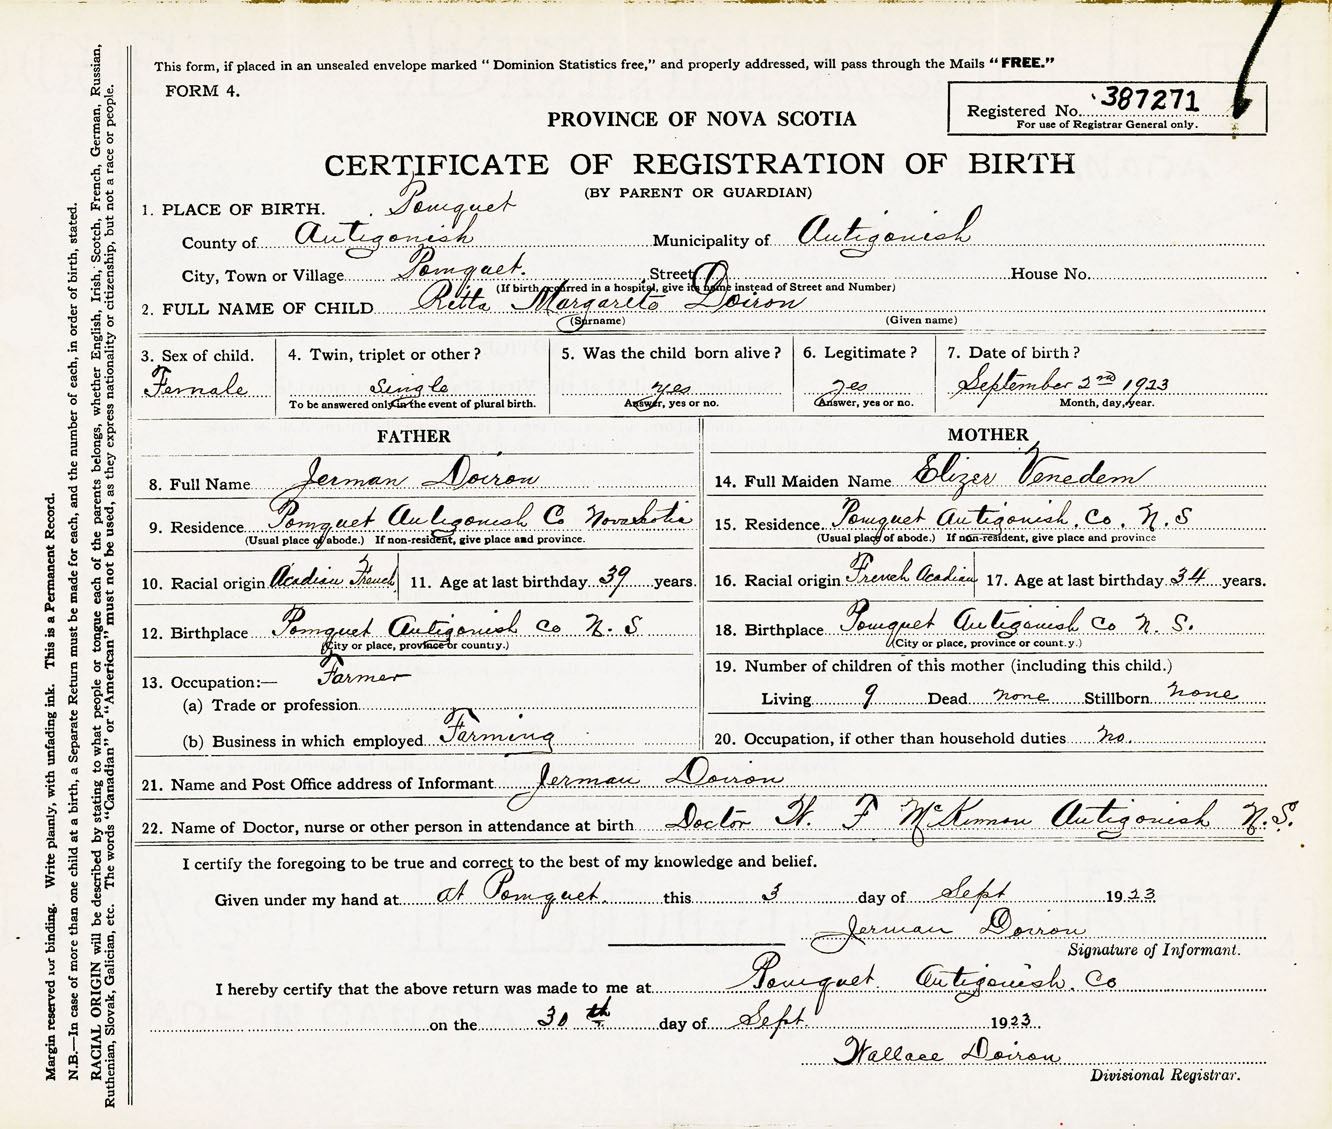 This form, if placed in an unsealed envelope marked "Dominion Statistics free," and properly addressed, will pass through the Mails "FREE."
FORM 4.
Registered No. 387271
For use of Registrar General only.
PROVINCE OF NOVA SCOTIA
CERTIFICATE OF REGISTRATION OF BIRTH
(BY PARENT OR GUARDIAN)
1. PLACE OF BIRTH. Pomquet
County of Antigonish Municipality of Antigonish
City, Town or Village Pomquet. Street House No.
(If birth occurred in a hospital, give its name instead of Street and Number)
2. FULL NAME OF CHILD Ritta Margarete Doiron
(Surname) (Given name)
3. Sex of child. 4. Twin, triplet or other? 5. Was the child born alive? 6. Legitimate? 7. Date of birth?
Female single yes yes September 2nd 1923
To be answered only in the event of plural birth. Answer, yes or no. Answer, yes or no. Month, day, year.
FATHER MOTHER
8. Full Name Jerman Doiron
14. Full Maiden Name Elizer Venedem
9. Residence Pomquet Antigonish Co Nova Scotia
15. Residence. Pomquet Antigonish. Co. N. S
(Usual place of abode.) If non-resident, give place and province.
(Usual place of abode.) If non-resident, give place and province
10. Racial origin Acadian French 11. Age at last birthday 39 years.
16. Racial origin French Acadian 17. Age at last birthday 34 years.
12. Birthplace Pomquet Antigonish Co N. S
18. Birthplace Pomquet Antigonish Co N. S.
(City or place, province or country.)
(City or place, province or country.)
13. Occupation:— Farmer
(a) Trade or profession
(b) Business in which employed Farming
19. Number of children of this mother (including this child.)
Living 9 Dead none Stillborn none
20. Occupation, if other than household duties no.
21. Name and Post Office address of Informant Jerman Doiron
22. Name of Doctor, nurse or other person in attendance at birth Doctor W. F McKinnon Antigonish N.S.
I certify the foregoing to be true and correct to the best of my knowledge and belief.
Given under my hand at at Pomquet. this 3 day of Sept 1923
Jerman Doiron
Signature of Informant.
I hereby certify that the above return was made to me at Pomquet Antigonish. Co
on the 30th day of Sept. 1923
Wallace Doiron
Divisional Registrar.
Margin reserved for binding. Write plainly, with unfading ink. This is a Permanent Record.
N.B.—In case of more than one child at a birth, a Separate Return must be made for each, and the number of each, in order of birth, stated.
RACIAL ORIGIN will be described by stating to what people or tongue each of the parents belongs, whether English, Irish, Scotch, French, German, Russian,
Ruthenian, Slovak, Galician, etc. The words "Canadian" or "American" must not be used, as they express nationality or citizenship, but not a race or people.